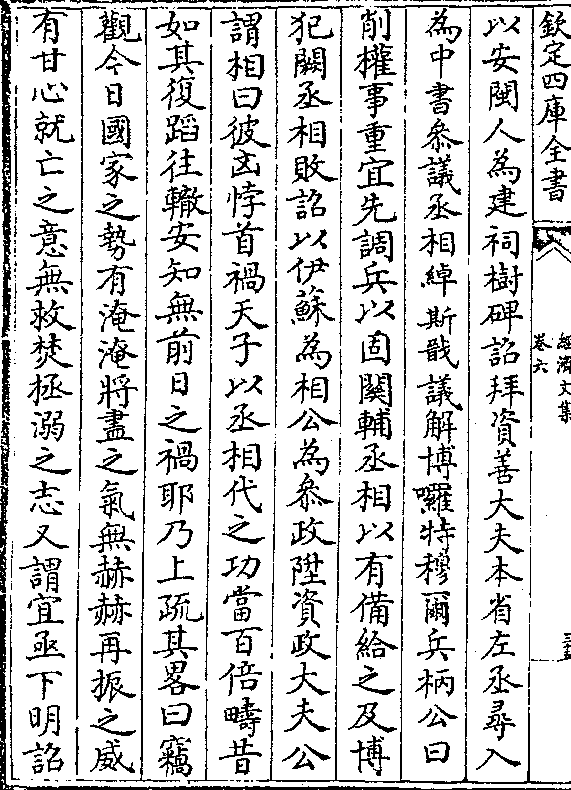 欽定四庫全書
經濟文集
卷六
三十三
以安閩人為建祠樹碑詔拜資善大夫本省左丞尋入
為中書叅議丞相綽斯戩議解博囉特穆爾兵柄公曰
削權事重宜先調兵以固關輔丞相以有備給之及博
犯闕丞相敗詔以伊蘇為相公為叅政陞資政大夫公
謂相曰彼㐫悖首禍天子以丞相代之功當百倍疇昔
如其復蹈往轍安知無前日之禍耶乃上疏其畧曰竊
觀今日國家之勢有淹淹將盡之氣無赫赫再振之威
有甘心就亡之意無救焚拯溺之志又謂宜亟下明詔